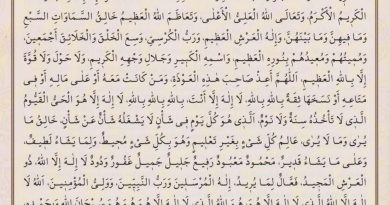 الْكَرِيمُ الْأَكْرَمُ، وَتَعَالَى اللهُ الْعَلِيُّ الْأَعْلَى، وَتَعَاظَمَ اللهُ الْعَظِيمُ خَالِقُ السَّمَاوَاتِ السَّبْعِ
وَمَا فِيهِنَّ وَمَا بَيْنَهُنَّ، وَإِلَهُ الْعَرْشِ الْعَظِيمِ، وَرَبُّ الْكُرْسِيِّ، وَسِعَ الْخَلْقَ وَالْخَلَائِقَ أَجْمَعِينَ،
وَمُمِيتُهُمْ وَمُعِيدُهُمْ بِنُورِهِ الْعَظِيمِ، وَاسْمِهِ الْكَبِيرِ وَجَلَالِ وَجْهِهِ الْكَرِيمِ، وَلَا حَوْلَ وَلَا قُوَّةَ
إِلَّا بِاللهِ الْعَظِيمِ، اَللَّهُمَّ أَعِذْ صَاحِبَ هَذِهِ الْعَوْذَةِ، وَمَنْ كَانَتْ مَعَهُ أَوْ عَلَى مَالِهِ أَوْ فِي
مَتَاعِهِ أَوْ نَسَخَهَا ثِقَةً بِاللهِ بِاللهِ، لَا إِلَهَ إِلَّا أَنْتَ، بِاللهِ بِاللهِ بِاللهِ، لَا إِلَهَ إِلَّا هُوَ الْحَيُّ الْقَيُّومُ
الَّذِي لَا تَأْخُذُهُ سِنَةٌ وَلَا نَوْمٌ، الَّذِي هُوَ كُلَّ يَوْمٍ فِي شَأْنٍ لَا يَشْغَلُهُ شَأْنٌ عَنْ شَأْنٍ، خَالِقُ مَا
يُرَى وَمَا لَا يُرَى، عَالِمُ كُلِّ شَيْءٍ بِغَيْرِ تَعْلِيمٍ وَهُوَ بِكُلِّ شَيْءٍ مُحِيطٌ، وَلِمَا يَشَاءُ لَطِيفٌ،
وَعَلَى مَا يَشَاءُ قَدِيرٌ، مَحْمُودٌ مَعْبُودٌ رَفِيعٌ جَلِيلٌ جَمِيلٌ غَفُورٌ وَدُودٌ لَا إِلَهَ إِلَّا اللهُ، ذُو
الْعَرْشِ الْمَجِيدِ، فَعَّالٌ لِمَا يُرِيدُ، إِلَهُ الْمُرْسَلِينَ وَرَبُّ النَّبِيِّينَ، وَوَلِيُّ الْمُؤْمِنِينَ، اَللهُ لَا